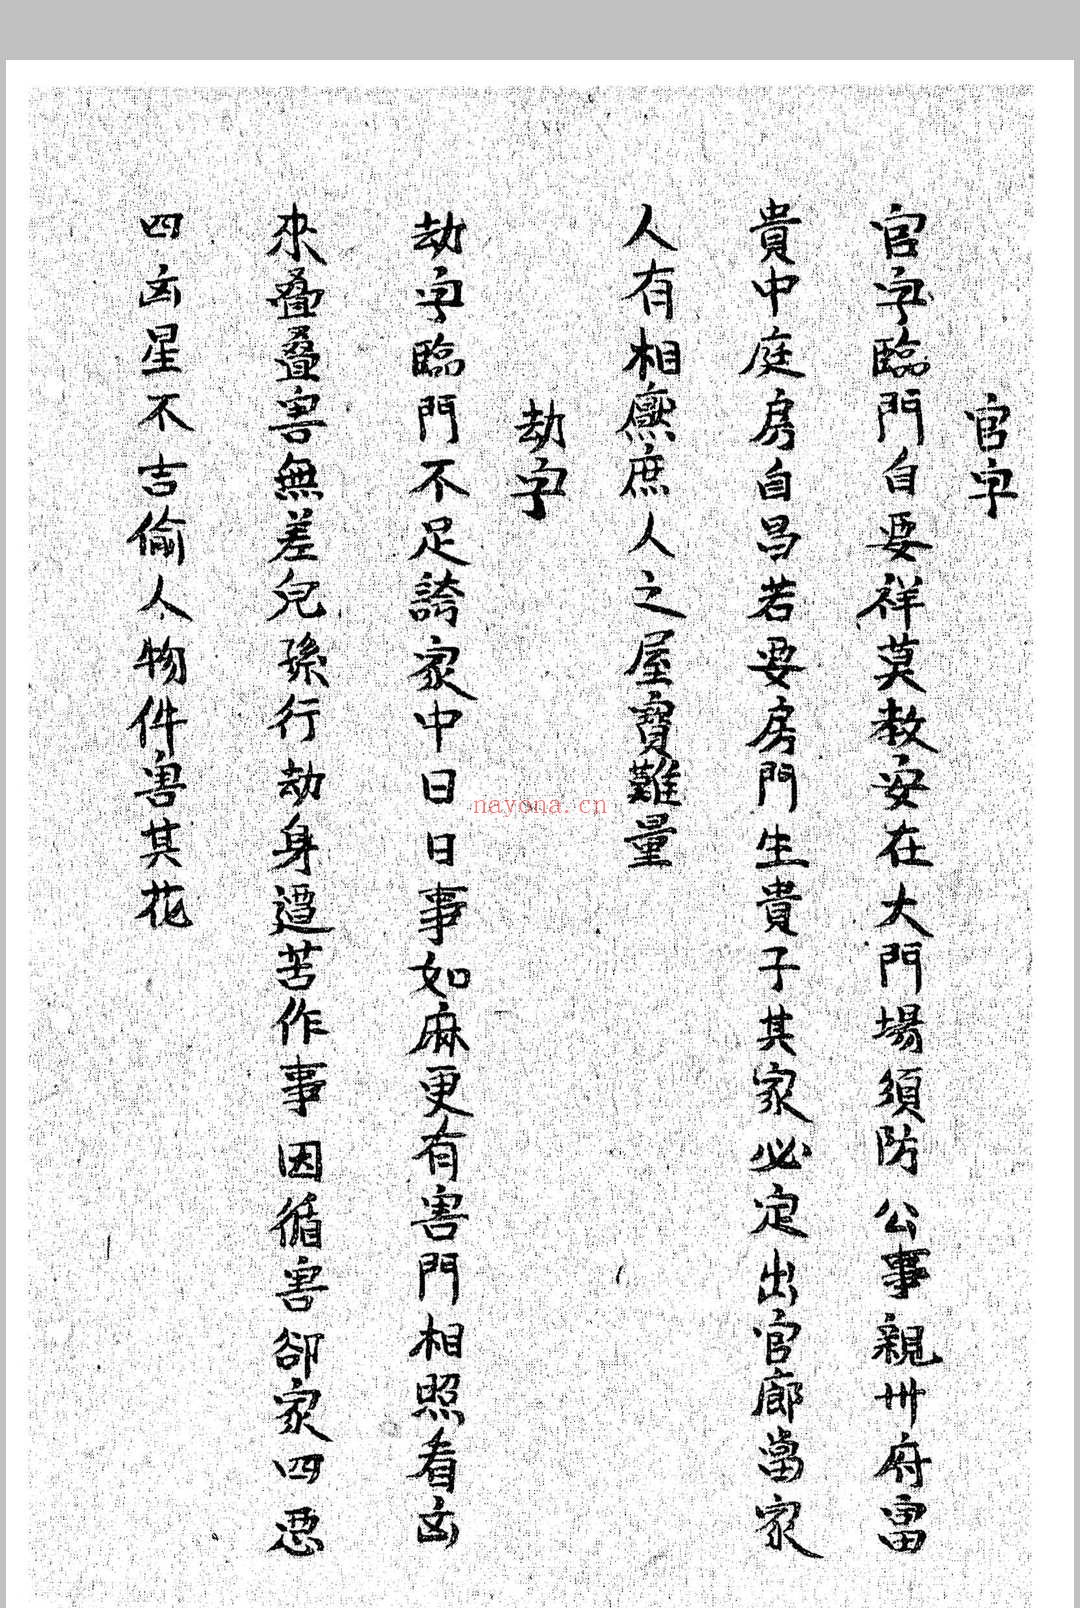 官字
官字臨門自要祥莫教安在大門場須防公事親州府富
貴中庭房自昌若要房門生貴子其家必定出官廊當家
人有相應庶人之屋寶難量
劫字
劫字臨門不足誇家中日日事如麻更有害門相照看凶
來叠叠害無差兒孫行劫身遭苦作事因循害卻家四惡
四凶星不吉偷人物件害其花
nayona.cn